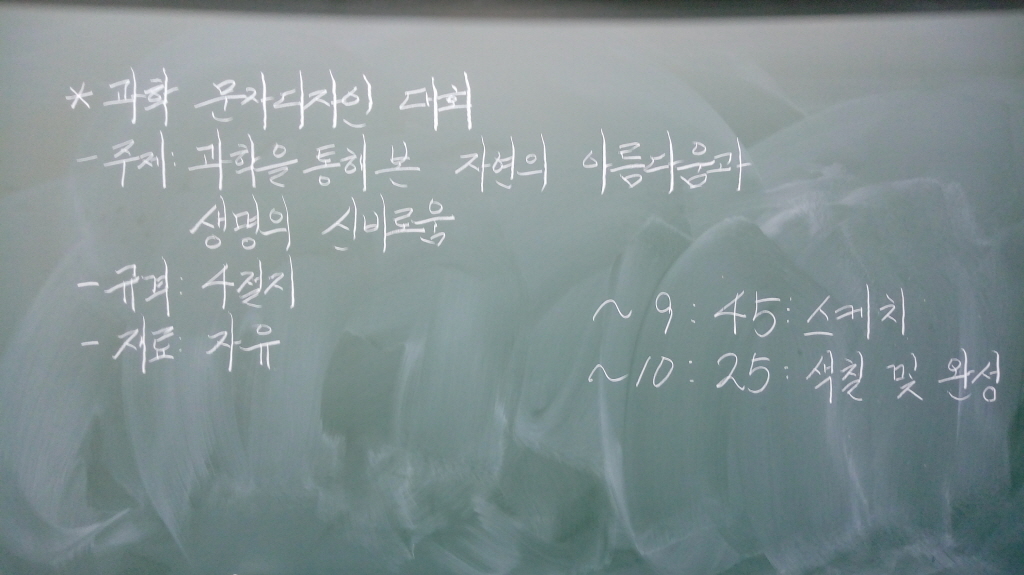 * 과학 문자디자인 대회
- 주제: 과학을 통해 본 자연의 아름다움과
생명의 신비로움
- 규격: 4절지
- 재료: 자유
~ 9 : 45 : 스케치
~ 10 : 25 : 색칠 및 완성